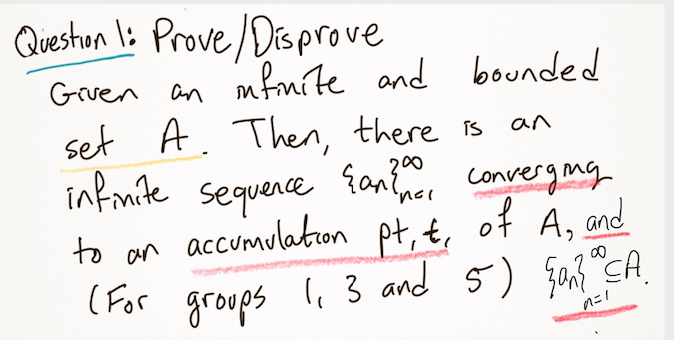 Question 1: Prove/Disprove
Given an infinite and bounded
set A. Then, there is an
infinite sequence {an}∞n=1 converging
to an accumulation pt, t, of A, and
(For groups 1, 3 and 5) {an}∞n=1 ⊆ A.